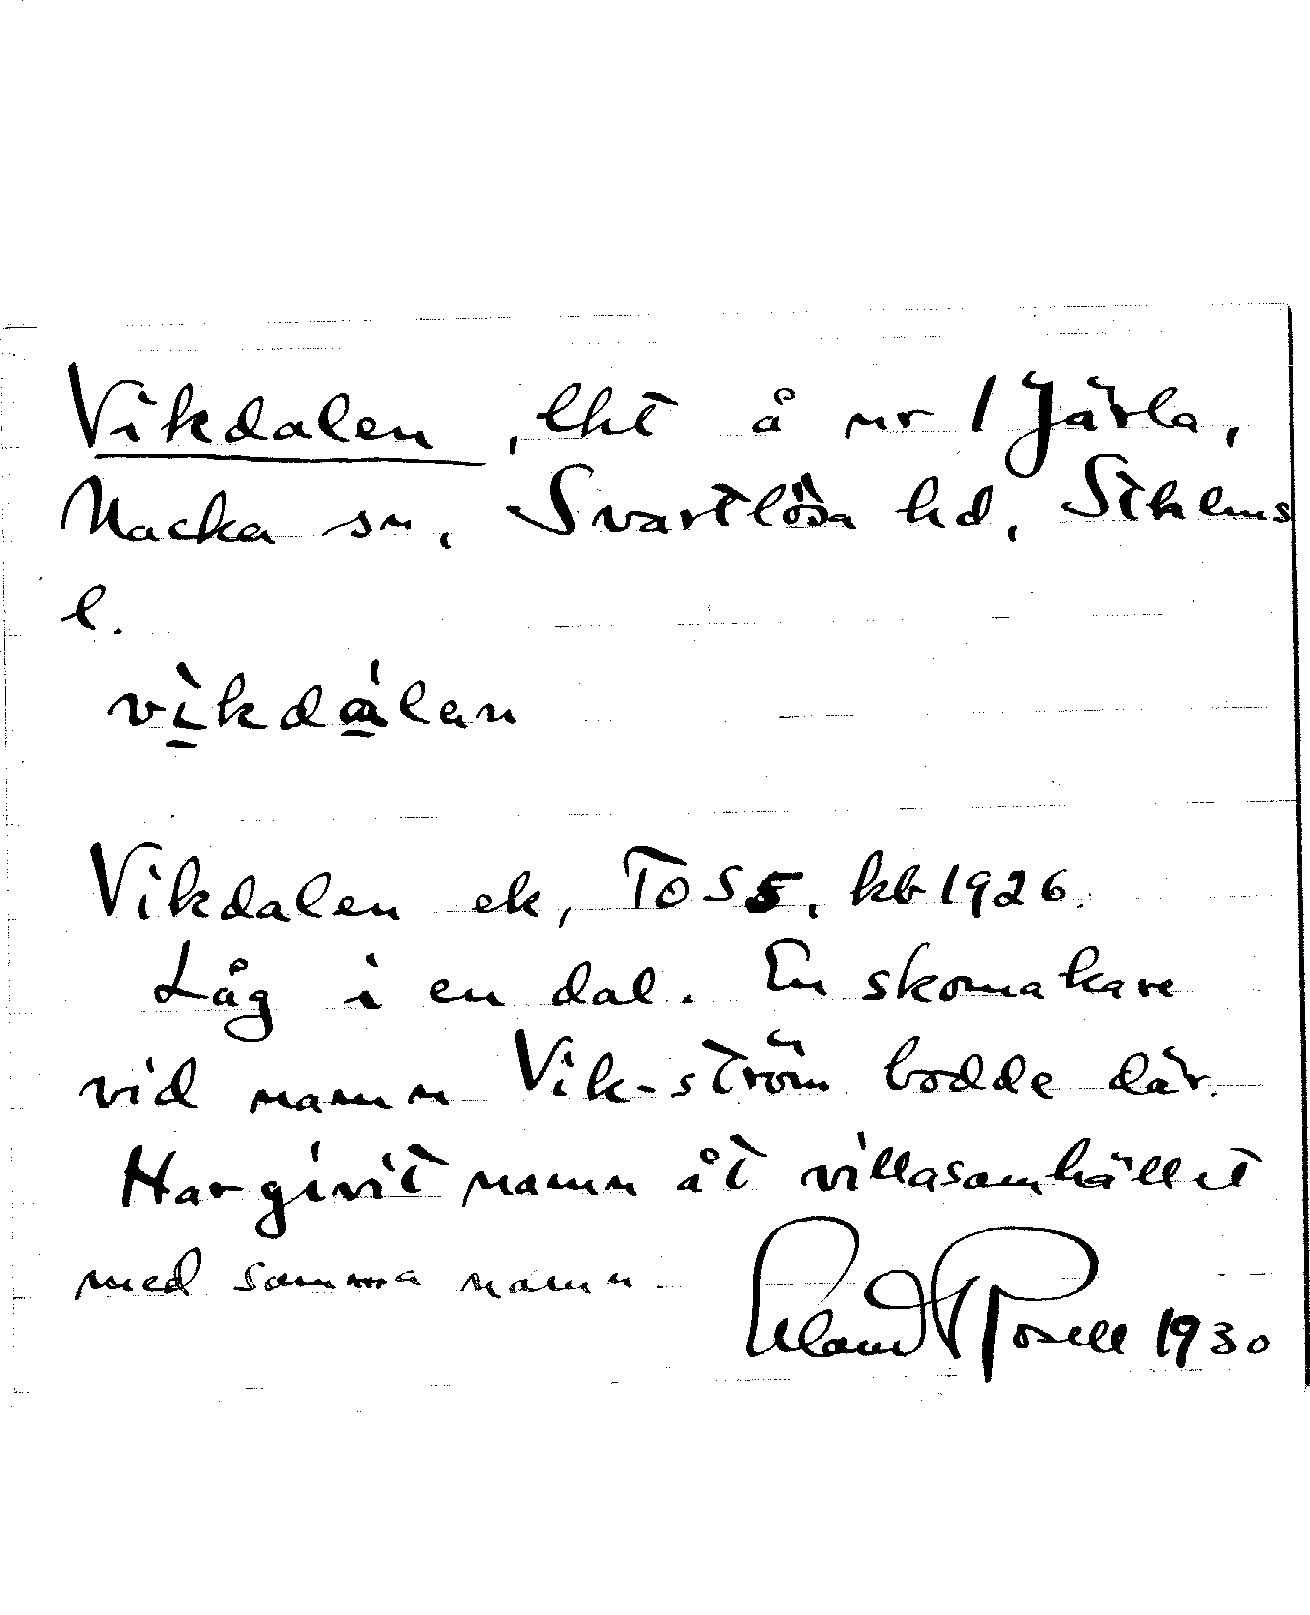 Vikdalen, lht å nr 1 Järla,
Nacka sn, Svartlösa hd, Sthlms
l.
vìkdálan
Vikdalen ek, To S5, kb 1926.
Låg i en dal. En skomakare
vid namn Vik-ström bodde där.
Har givit namn åt villasamhället
med samma namn.
Erland Rosell 1930